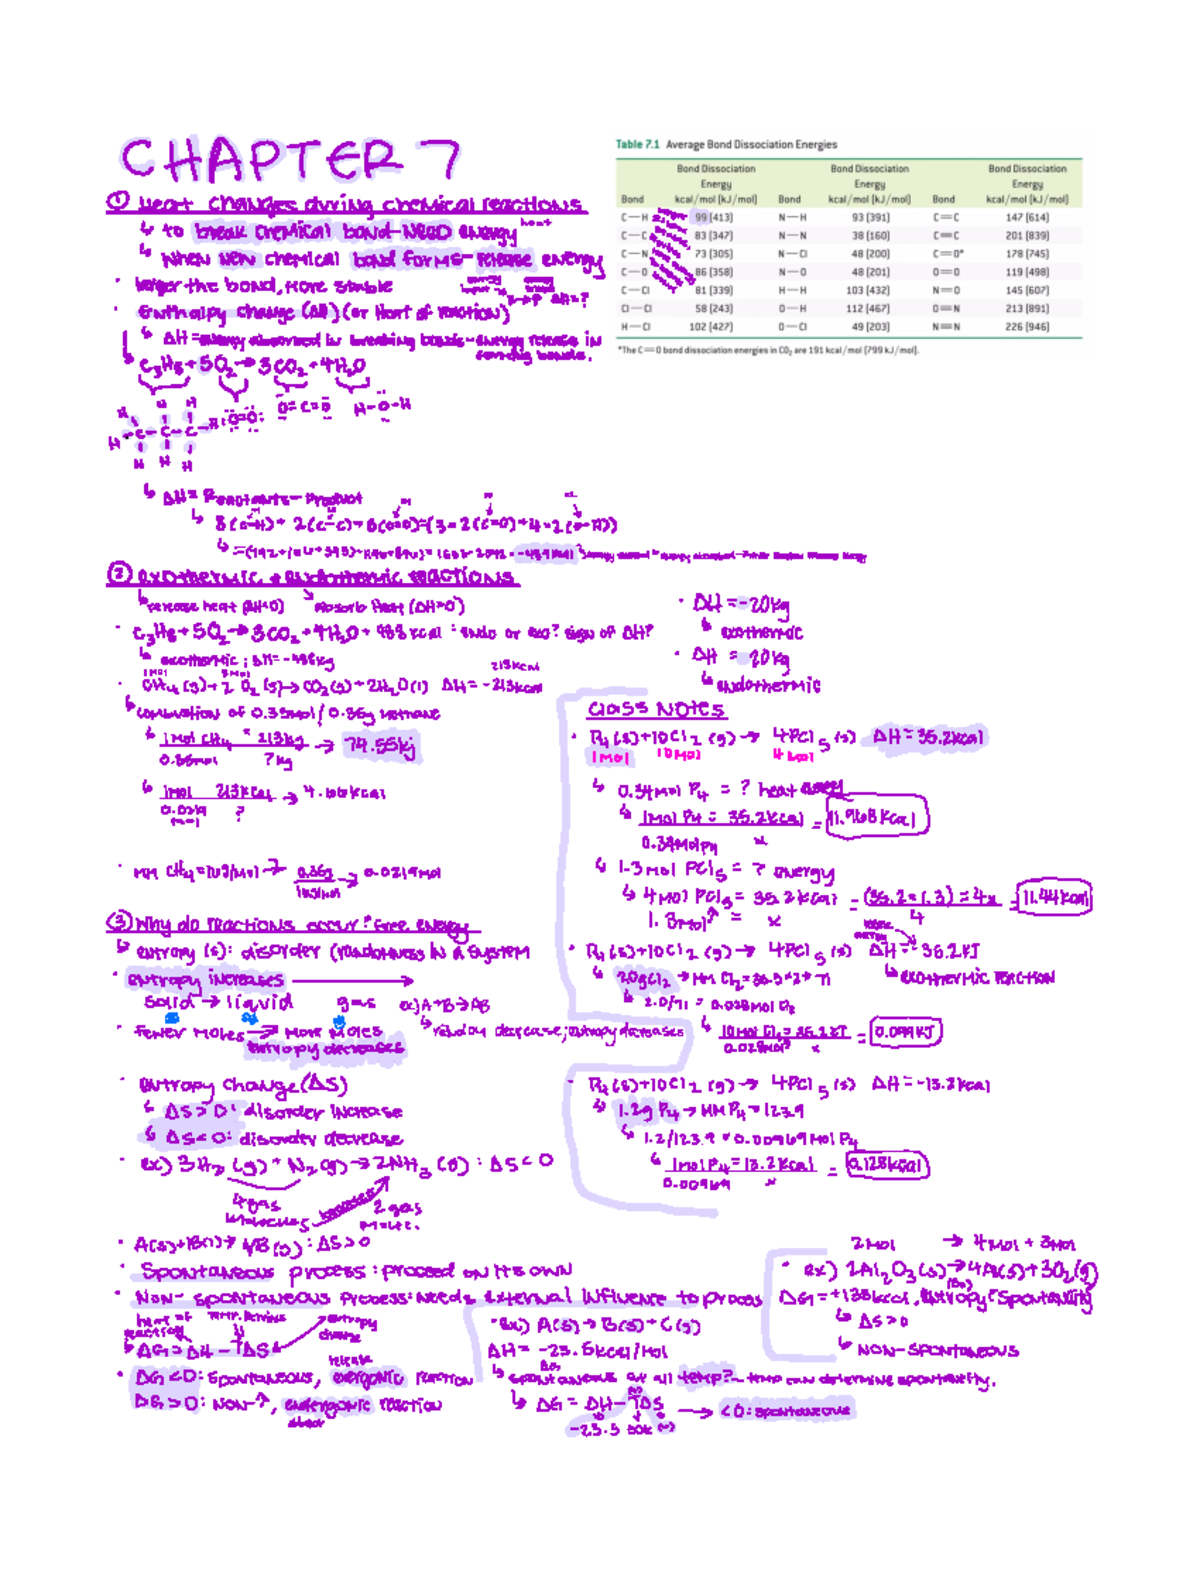 CHAPTER 7
① Heat changes during chemical reactions
↳ to break chemical bond-NEED energy heat
↳ When new chemical bond forms-release energy
· larger the bond, more stable
· Enthalpy change (ΔH) (or Heat of reaction)
ΔH=?
↳ ΔH=energy absorbed in breaking bonds-energy release in forming bonds.
↳ C₃H₈+5O₂→3CO₂+4H₂O
O=C=O H-O-H
H H H
H-C-C-C-H :O=O:
H H H
↳ ΔH= Reactants-Product
↳ 8(C-H)+ 2(C-C)+5(O=O)-(3×2(C=O)+4×2(O-H))
Table 7.1 Average Bond Dissociation Energies
Bond Bond Dissociation Energy kcal/mol (kJ/mol) Bond Bond Dissociation Energy kcal/mol (kJ/mol) Bond Bond Dissociation Energy kcal/mol (kJ/mol)
C—H 99 (413) N—H 93 (391) C=C 147 (614)
C—C 83 (347) N—N 38 (160) C≡C 201 (839)
C—N 73 (305) N—Cl 48 (200) C=O* 178 (745)
C—O 86 (358) N—O 48 (201) O=O 119 (498)
C—Cl 81 (339) H—H 103 (432) N=O 145 (607)
Cl—Cl 58 (243) O—H 112 (467) O≡N 213 (891)
H—Cl 102 (427) O—Cl 49 (203) N≡N 226 (946)
*The C=O bond dissociation energies in CO₂ are 191 kcal/mol (799 kJ/mol).
② exothermic + endothermic reactions
↳ release heat (ΔH<0) ↘ absorb Heat (ΔH>0)
· C₃H₈+5O₂→3CO₂+4H₂O+ 488 kcal : endo or exo? sign of ΔH?
↳ exothermic; ΔH=-488kg
1mol 213kcal
· CH₄(g)+2 O₂(g)→CO₂(g)+2H₂O(l) ΔH = -213kcal
↳ combustion of 0.35mol/0.36g methane
↳ 1mol CH₄ = 213kg → 74.55kj
0.35mol ?kg
↳ 1mol 213kcal →
0.0219 mol ?
· MM CH₄=16g/mol → 0.36g → 0.0219mol
· ΔH =-20kg
↳ exothermic
· ΔH = 20kg
↳ endothermic
③ Why do reactions occur? Free energy
↳ entropy (s): disorder (randomness in a system
· entropy increases →
Solid → liquid gas ex) A+B→AB
· Fewer moles → more moles
entropy decreases
↳ random decrease; entropy decreases
· entropy change (ΔS)
↳ ΔS>0: disorder increase
↳ ΔS<0: disorder decrease
· ex) 3H₂ (g)+ N₂(g)→2NH₃ (g) : ΔS<0
4 gas molecules 2 gas molec.
: ΔS>0
· Spontaneous process: proceed on its own
· Non-spontaneous process: needs external influence to process
heat of reaction temp. kelvins entropy change
↳ ΔG=ΔH-TΔS
· ΔG<0: Spontaneous, exergonic reaction
release
ΔG>0: Non-↗, endergonic reaction
Class Notes
· P₄(s)+10Cl₂ (g)→ 4PCl₅(s) ΔH=35.2kcal
1mol 10mol 4mol
↳ 0.34mol P₄ = ? heat
↳ 1mol P₄ = 35.2kcal = 11.968kcal
0.34molP₄ x
↳ 1.3mol PCl₅ = ? energy
↳ 4mol PCl₅ = 35.2kcal = (35.2×1.3)=4x = 11.44kcal
1.3mol = x 4
· P₄(s)+10Cl₂ (g)→ 4PCl₅(s) ΔH=-35.2KJ
↳ exothermic reaction
↳ 2.0gCl₂ → MM Cl₂=35.5×2= 71
↳ 2.0/71 = 0.028mol Cl₂
↳ 10mol Cl₂=35.2KJ = 0.099KJ
0.028mol x
· P₄(s)+10Cl₂ (g)→ 4PCl₅(s) ΔH=-13.2kcal
↳ 1.2g P₄→MM P₄=123.9
↳ 1.2/123.9=0.00969mol P₄
↳ 1molP₄=13.2kcal = 0.128kcal
0.00969 x
2mol → 4mol + 3mol
· ex) 2Al₂O₃(s)→4Al(s)+3O₂(g)
ΔG=+138kcal, entropy? Spontaneity
↳ ΔS>0
↳ NON-SPONTANEOUS
·ex) A(s)→B(s)+C(g)
ΔH= -23.5kcal/mol
↳ spontaneous at all temp?- temp can determine spontaneity.
↳ ΔG = ΔH-TΔS → <0:spontaneous
-23.5